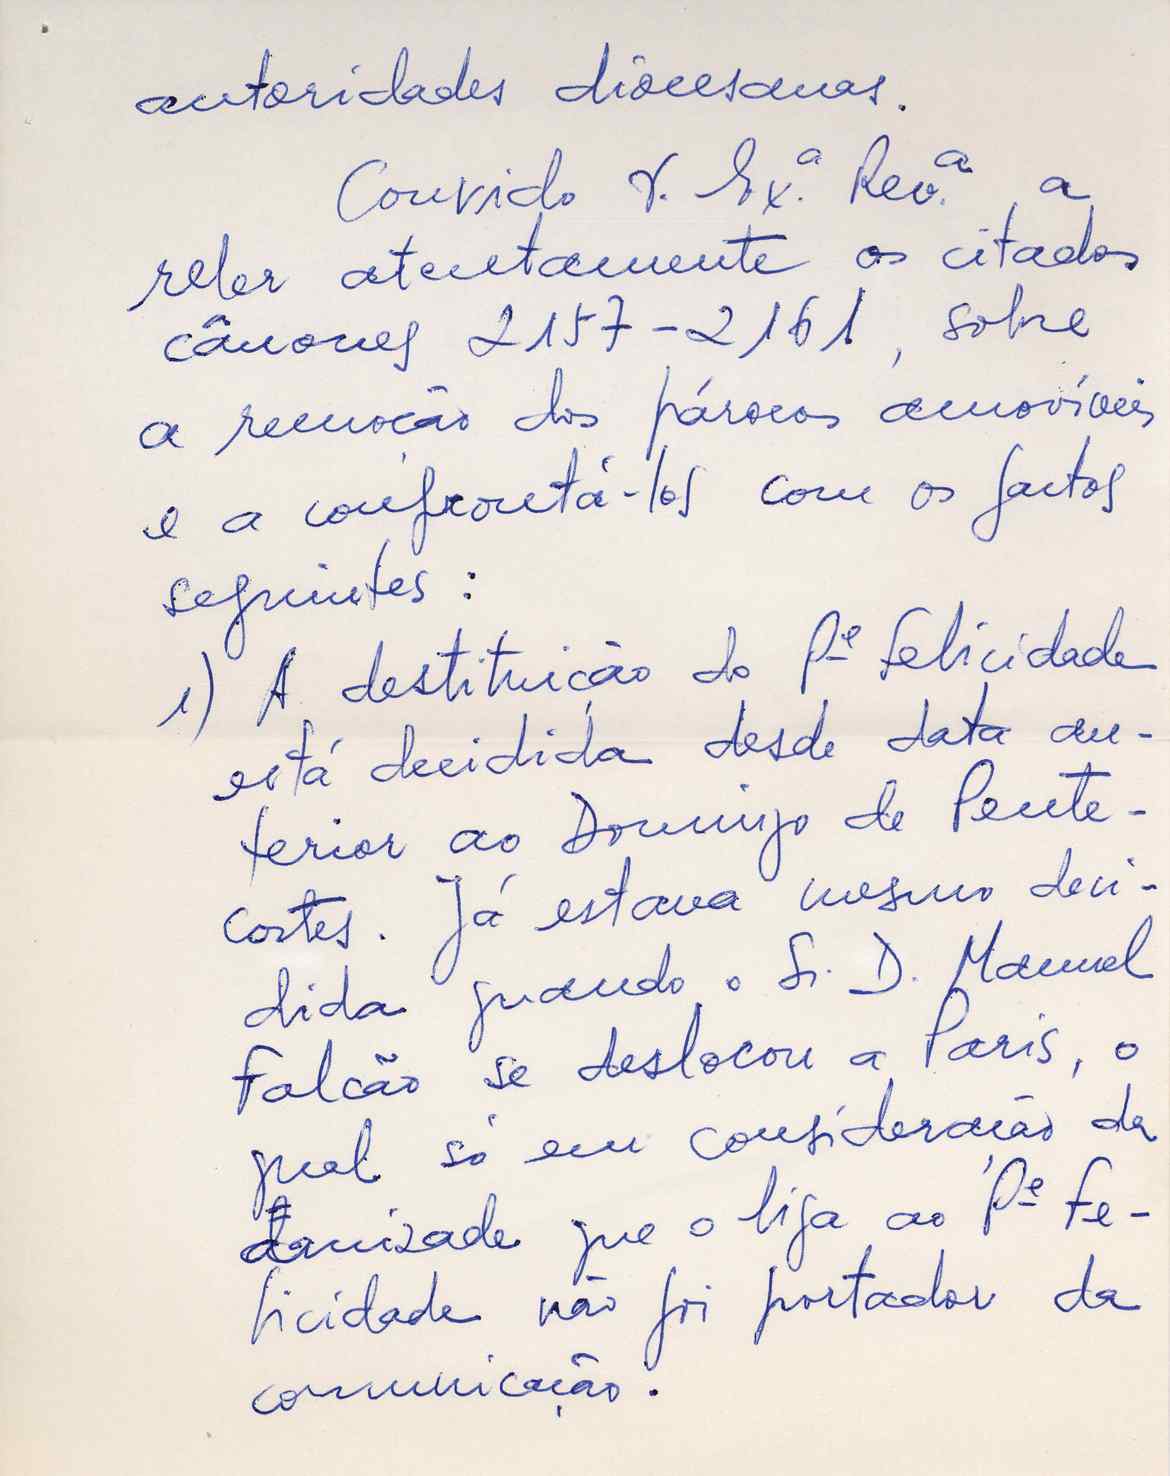 autoridades diocesanas.
Convido V. Ex.ª Rev.ª a
reler atentamente os citados
cânones 2157-2161, sobre
a remoção dos párocos amovíveis
e a confrontá-los com os factos
seguintes:
1) A destituição do Pᵉ Felicidade
está decidida desde data an-
terior ao Domingo de Pente-
costes. Já estava mesmo deci-
dida quando o Sr. D. Manuel
Falcão se deslocou a Paris, o
qual só em consideração da
amizade que o liga ao Pᵉ Fe-
licidade não foi portador da
comunicação.